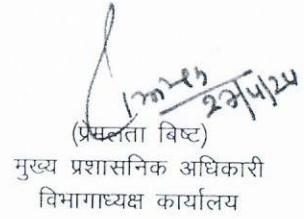 27/4/24
(प्रेमलता बिष्ट)
मुख्य प्रशासनिक अधिकारी
विभागाध्यक्ष कार्यालय